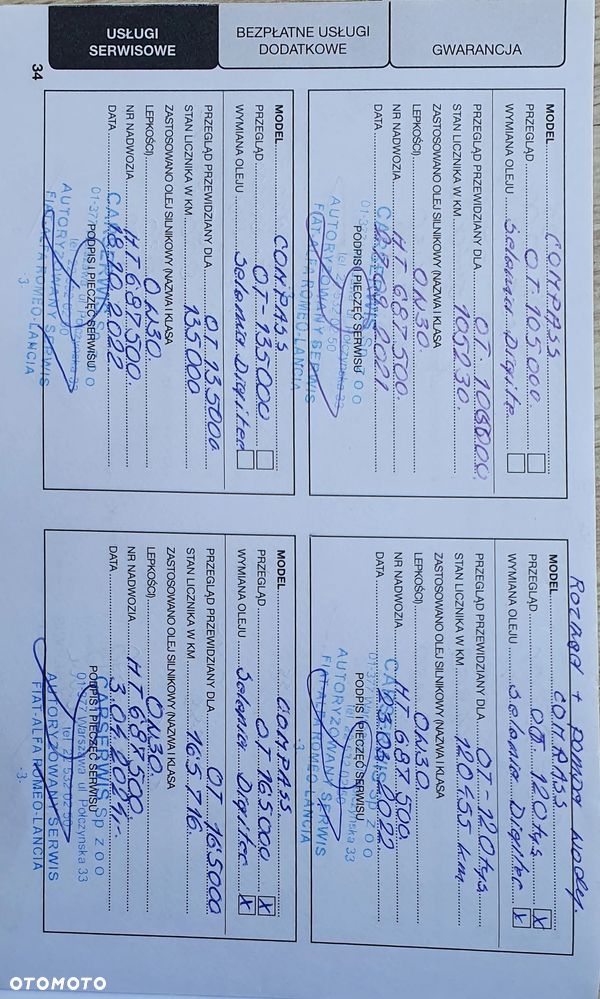 USŁUGI
SERWISOWE
BEZPŁATNE USŁUGI
DODATKOWE
GWARANCJA
34
MODEL COMPASS
PRZEGLĄD OT 105.000
WYMIANA OLEJU Selenia
PRZEGLĄD PRZEWIDZIANY DLA OT-
STAN LICZNIKA W KM 105230.
ZASTOSOWANO OLEJ SILNIKOWY (NAZWA I KLASA
LEPKOŚCI) 0W30
NR NADWOZIA HT 687500.
DATA 2021
PODPIS I PIECZĘĆ SERWISU
AUTORYZOWANY SERWIS
FIAT-ALFA ROMEO-LANCIA
Rozrząd + pompa wody.
MODEL COMPASS
PRZEGLĄD OT 120 tys
WYMIANA OLEJU Selenia Digiter
X
X
PRZEGLĄD PRZEWIDZIANY DLA OT-120 tys.
STAN LICZNIKA W KM 120455 km
ZASTOSOWANO OLEJ SILNIKOWY (NAZWA I KLASA
LEPKOŚCI) 0W30
NR NADWOZIA HT 687500
DATA 03.2022
PODPIS I PIECZĘĆ SERWISU
AUTORYZOWANY SERWIS
FIAT-ALFA ROMEO-LANCIA
-3-
MODEL COMPASS
PRZEGLĄD OT-135000
WYMIANA OLEJU Selenia Digiter
PRZEGLĄD PRZEWIDZIANY DLA OT 135000
STAN LICZNIKA W KM 135000
ZASTOSOWANO OLEJ SILNIKOWY (NAZWA I KLASA
LEPKOŚCI) 0W30.
NR NADWOZIA HT 687500.
DATA 18.10.2022
PODPIS I PIECZĘĆ SERWISU
CARSERWIS Sp z o o
AUTORYZOWANY SERWIS
FIAT-ALFA ROMEO-LANCIA
-3-
MODEL COMPASS
PRZEGLĄD OT 165000
WYMIANA OLEJU Selenia Digiter
X
X
PRZEGLĄD PRZEWIDZIANY DLA OT 165000
STAN LICZNIKA W KM 165716
ZASTOSOWANO OLEJ SILNIKOWY (NAZWA I KLASA
LEPKOŚCI) 0W30.
NR NADWOZIA HT 687500
DATA
PODPIS I PIECZĘĆ SERWISU
CARSERWIS Sp z o o
01-377 Warszawa ul Połczynska 33
tel 22 532 02 50
AUTORYZOWANY SERWIS
FIAT-ALFA ROMEO-LANCIA
-3-
OTOMOTO